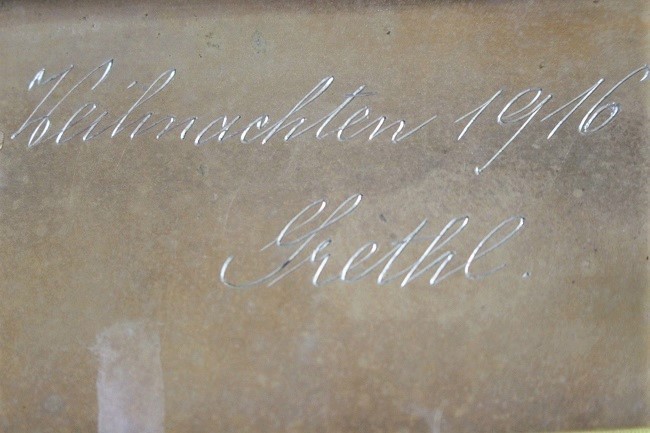 Weihnachten 1916
Grethl.